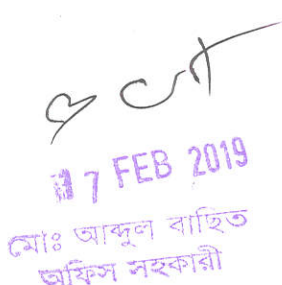 7 FEB 2019
মোঃ আব্দুল বাহিত
অফিস সহকারী